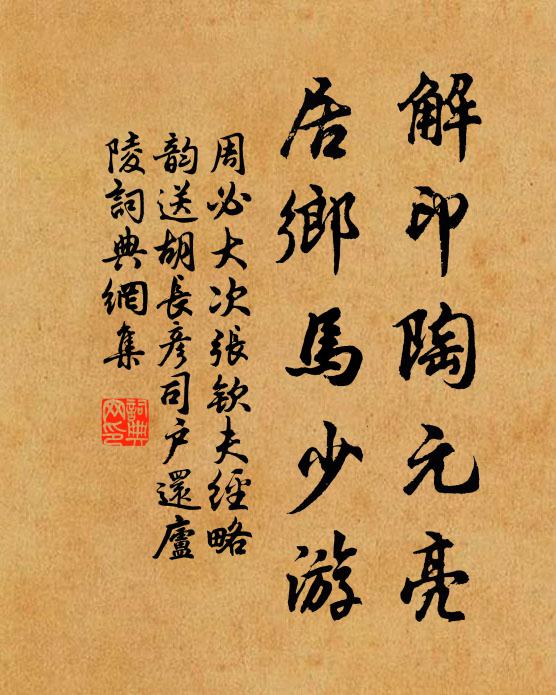 解印陶元亮
居鄉馬少游
周必大次張欽夫經略
韵送胡長彦司户還廬
陵詞典網集
詞典
网印